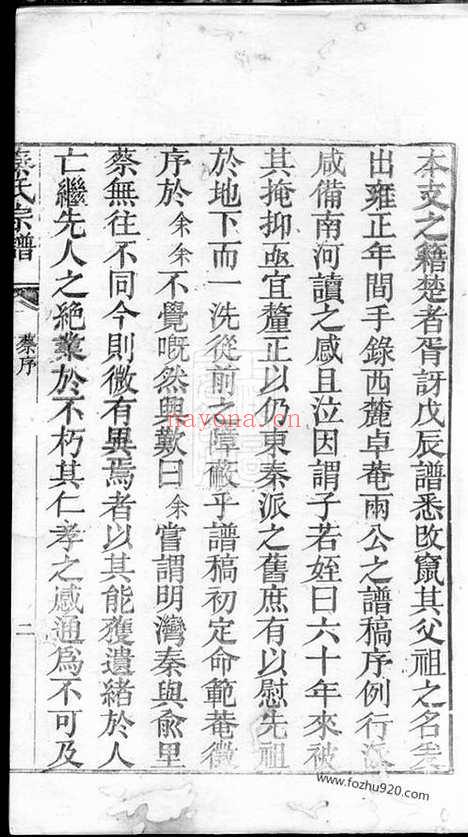 本支之籍楚者胥訝戊辰譜悉改竄其父祖之名
出雍正年間手錄西麓卓菴兩公之譜稿序例行派
咸備南河讀之感且泣因謂子若姪曰六十年來被
其掩抑亟宜釐正以仍東秦派之舊庶有以慰先祖
於地下而一洗從前之障蔽乎譜稿初定命範菴徵
序於余余不覺嘅然興歎曰余嘗謂明灣秦與俞里
蔡無往不同今則微有異焉者以其能獲遺緒於人
亡繼先人之絶業於不朽其仁孝之感通為不可及
氏宗譜
蔡序
二
nayona.cn
www.fozhu920.com